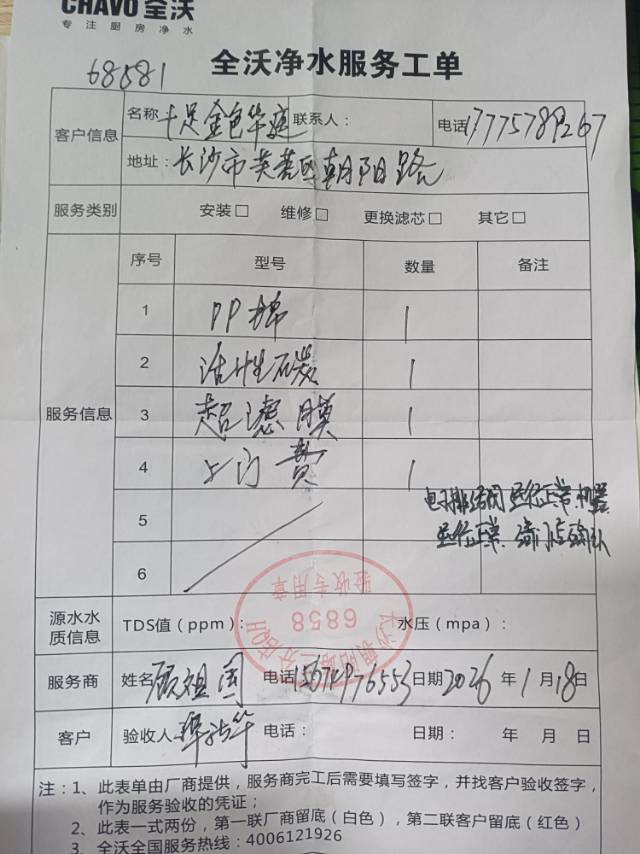 CHAVO 全沃
专注厨房净水
68581
全沃净水服务工单
客户信息
名称 十足金色华庭 联系人： 电话 17775789267
地址：长沙市芙蓉区朝阳路
服务类别 安装□ 维修□ 更换滤芯□ 其它□
服务信息
序号 型号 数量 备注
1 PP棉 1
2 活性碳 1
3 超滤膜 1
4 上门费 1
5
6
运行正常 机器
运行正常
验收专用章
6858
源水水质信息 TDS值（ppm）： 水压（mpa）：
服务商 姓名 顾祖国 电话 15674976553 日期 2026 年 1 月 18 日
客户 验收人 电话： 日期： 年 月 日
注：1、此表单由厂商提供，服务商完工后需要填写签字，并找客户验收签字，
作为服务验收的凭证；
2、此表一式两份，第一联厂商留底（白色），第二联客户留底（红色）
3、全沃全国服务热线：4006121926